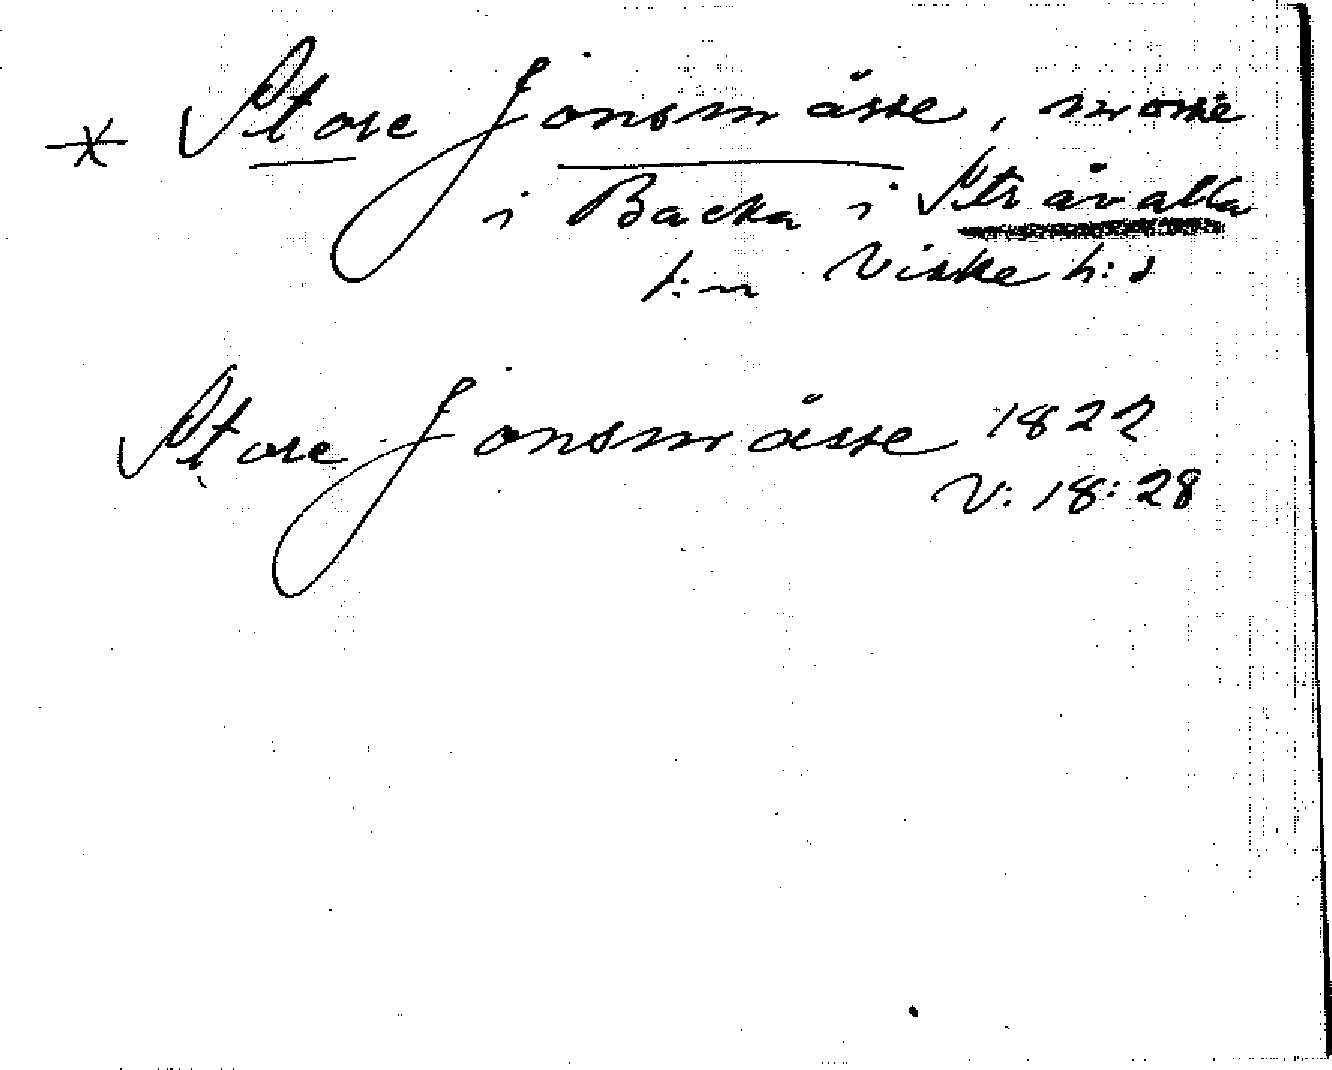 * Store Jonsmässe, mosse
i Backa i Stråvalla
s:n Viske h:d
Store Jonsmässe 1822
V: 18:28